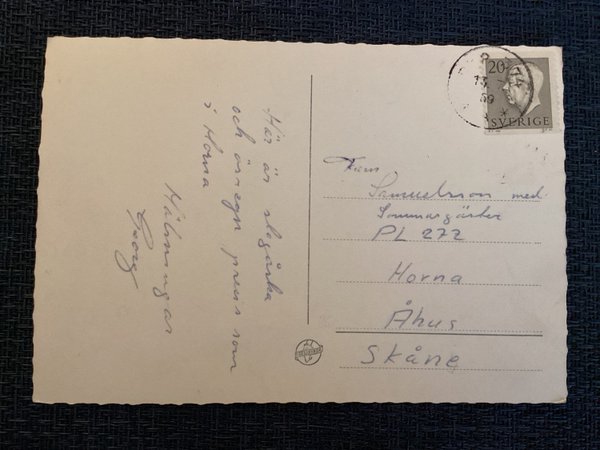 Här är slogårka
och örnegn precis som
i Horna
Hälsningar
Georg
Fam
Samuelsson med
Sommargäster
PL 272
Horna
Åhus
Skåne
20
SVERIGE